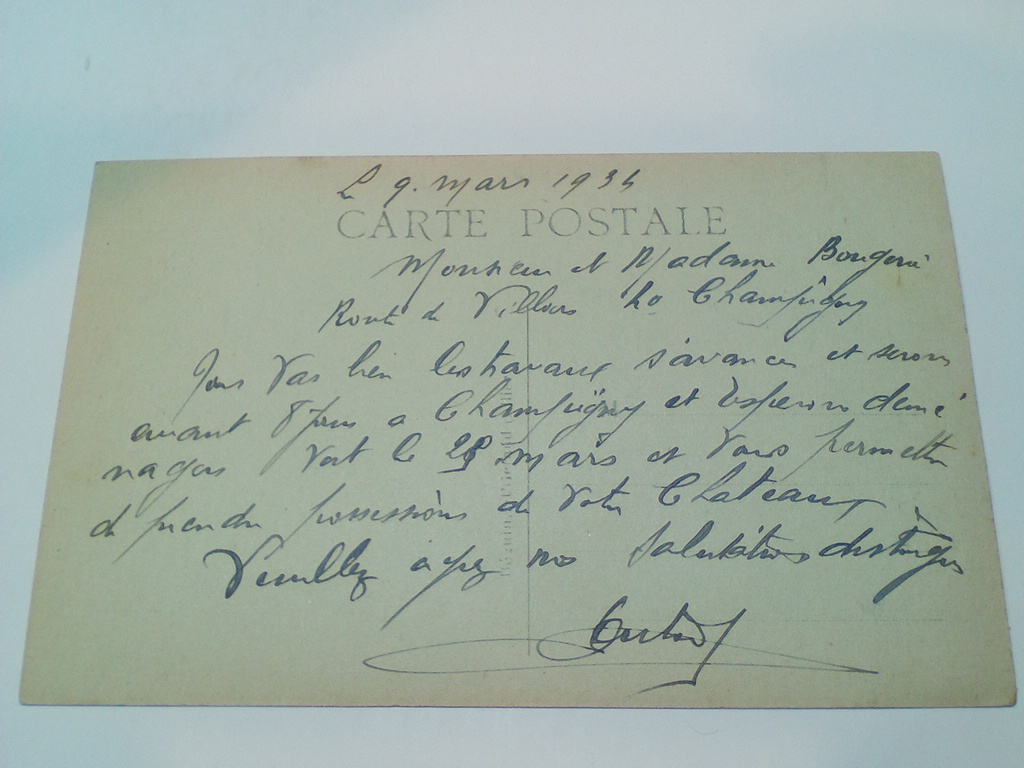 L 9. mars 1934
CARTE POSTALE
Monsieur et Madame
Route de Villiers Champigny
Tous Vas bien les travaux s'avance et serons
avant 8 jours a Champigny et Esperons demé
nager Vert le 28 mars et Vous permettre
d prendre possessions de Votre Chateaux
Veuillez nos Salutations distingues